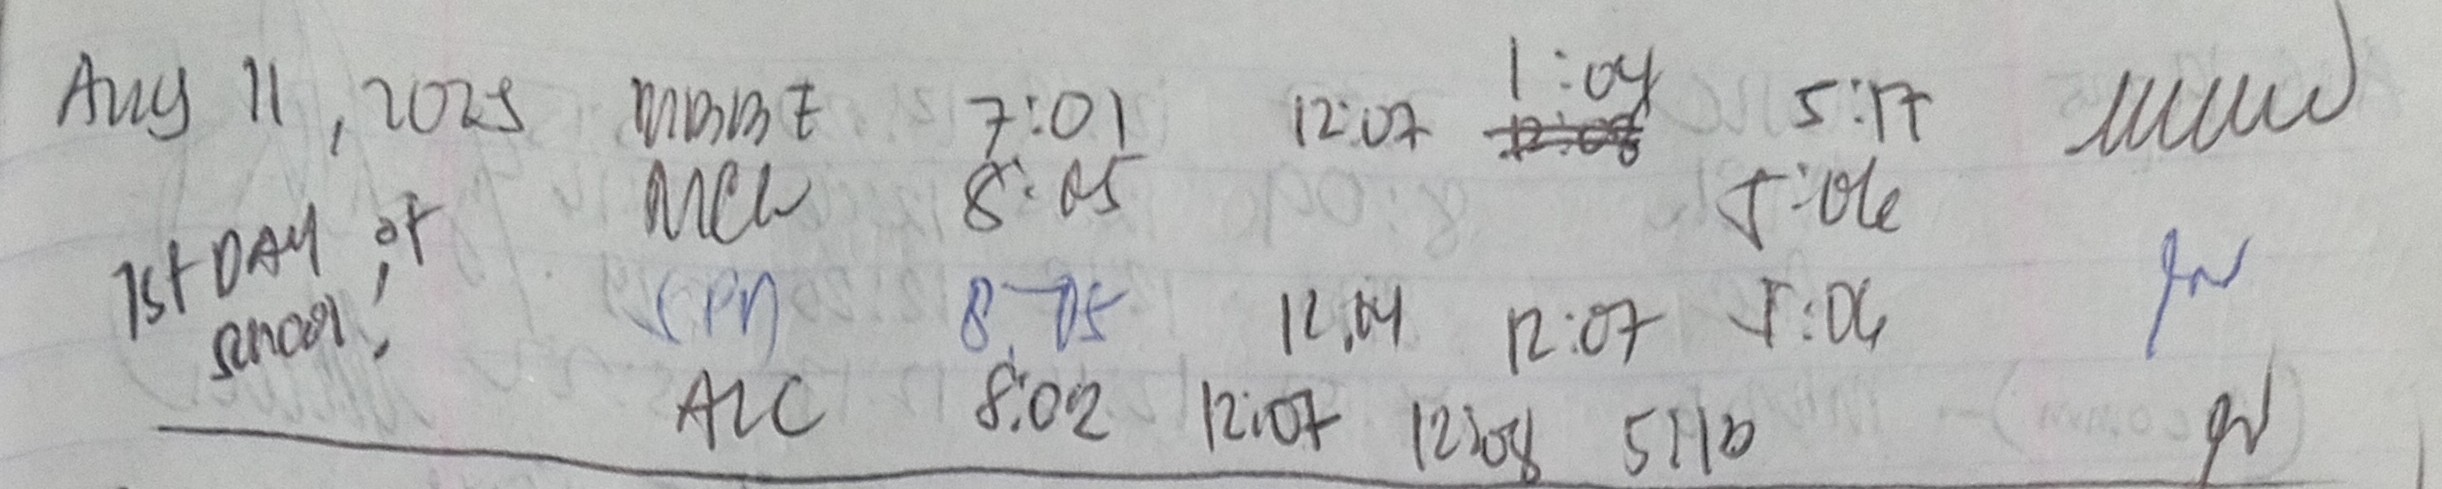 Aug 11, 2025 MBBE 7:01 12:07 1:04 5:17
MCW 8:05 5:06
1st DAY of
school!
CPA 8:05 12:04 12:07 5:06
ALC 8:02 12:07 12:08 5:10